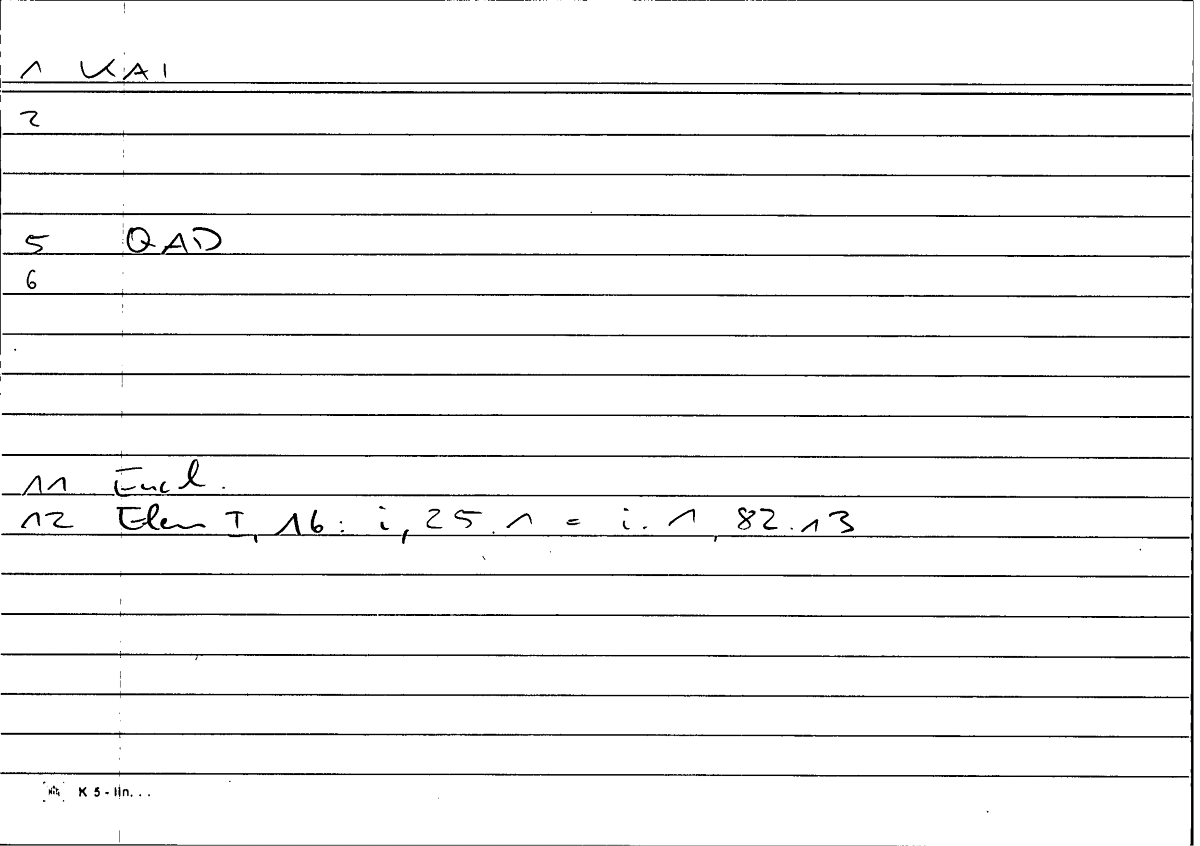 1 KAI
2
5 QAD
6
11 Eucl.
12 Elem I, 16: i, 25.1 = i.1, 82.13
K 5 - lin...